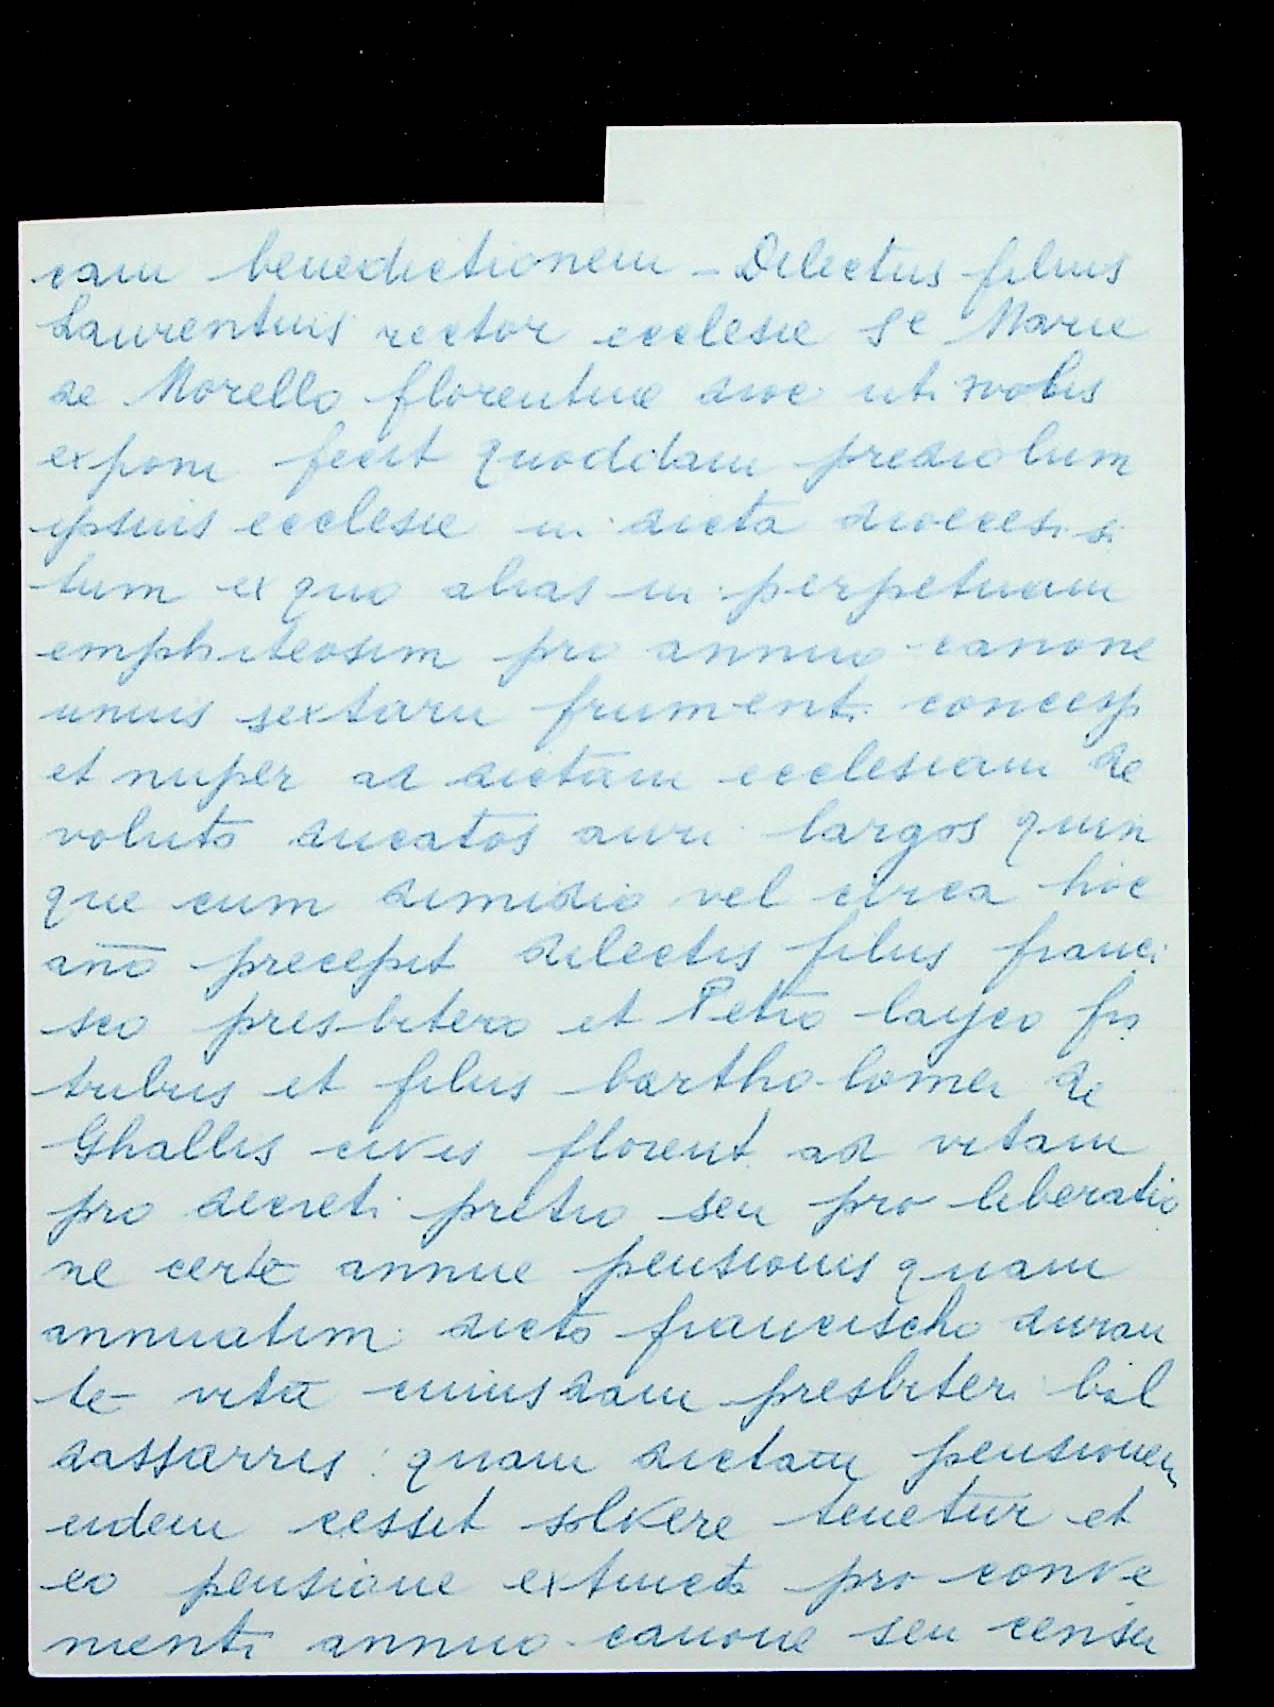 cam benedictionem - Dilectus filius
Laurentius rector ecclesie Se Marie
de Morello florentine dioc uti nobis
exponi fecit quoddam prediolum
ipsius ecclesie in dicta diocesi si
tum ex quo alias in perpetuam
emphiteosim pro annuo canone
unius sextarii frumenti
et nuper ad dictam ecclesiam de
voluto ducatos auri largos quin
que cum dimidio vel circa hoc
ano precepit dilectis filiis franci
sco presbitero et Petro layco fra
tribus et filiis bartholomei de
Ghallis cives florent ad vitam
pro decreti pretio seu pro liberatio
ne certe annue pensionis quam
annuatim dicto francischo duran
te vita cuiusdam presbiteri bal
dassarris quam dictam pensionem
eidem cesset solvere tenetur et
eo pensione extincta pro conve
nienti annuo canone seu censu